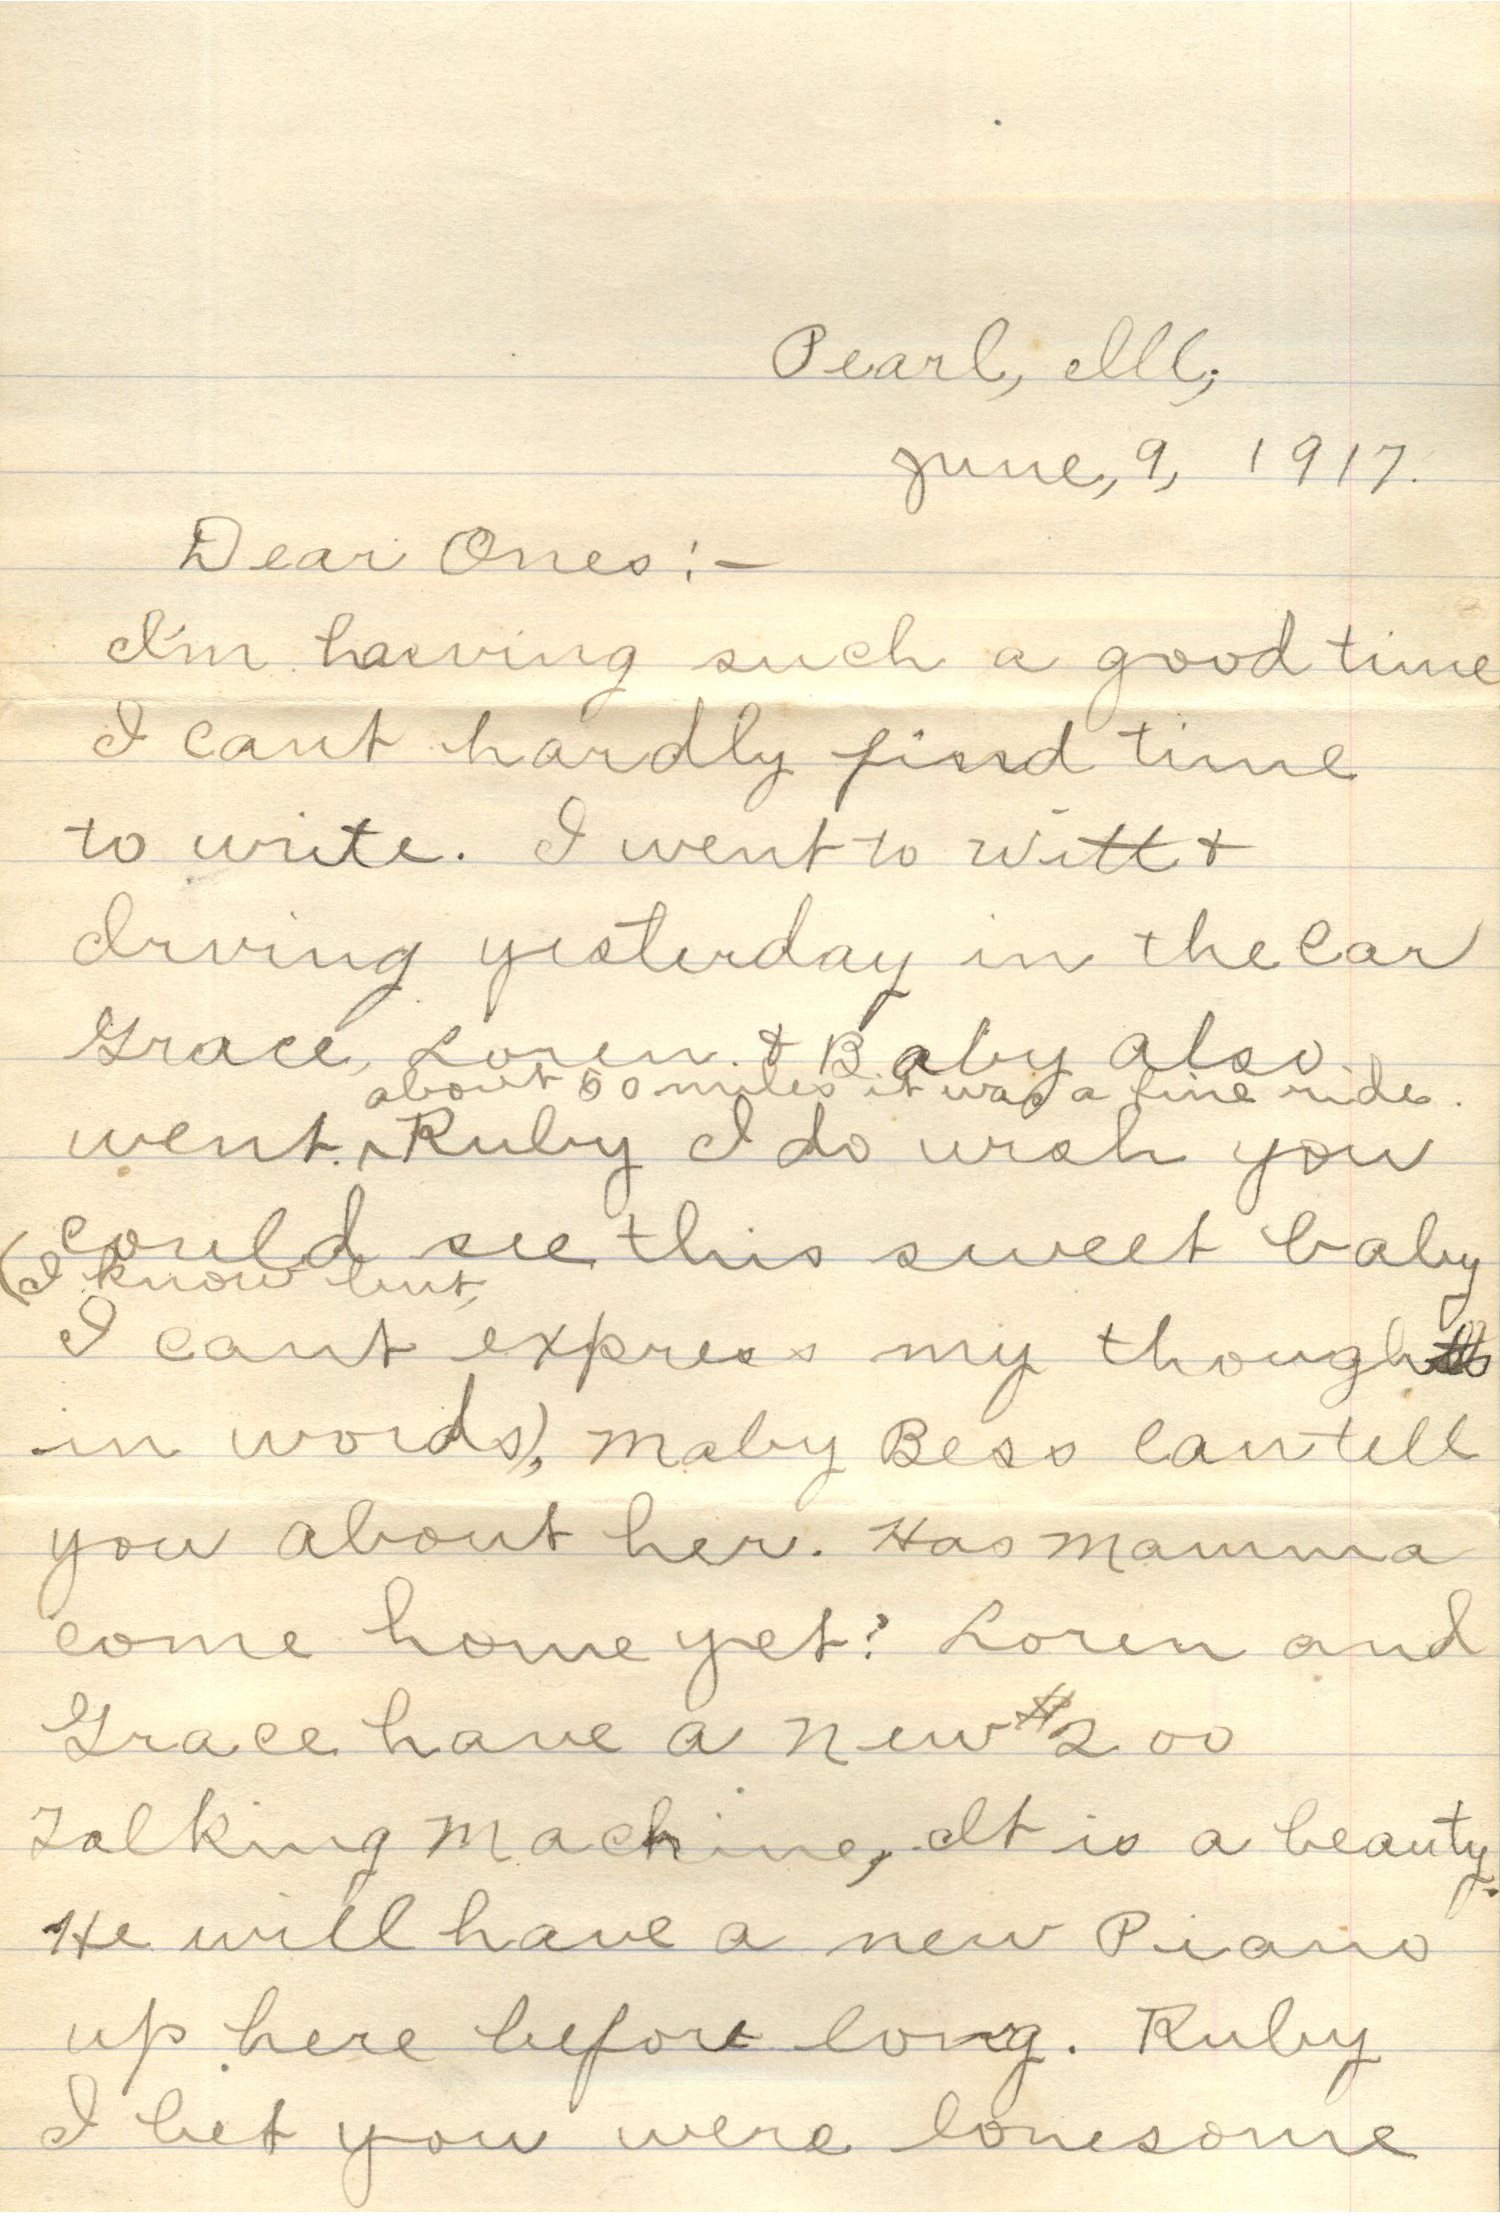 Pearl, Ill,
June, 9, 1917.
Dear Ones:-
I'm having such a good time
I cant hardly find time
to write. I went to Witt &
Irving yesterday in the Car
Grace, Loren & Baby also
about 50 miles it was a fine ride.
went. ^ Ruby I do wish you
could see this sweet baby
(I know but,
I cant express my thoughts
in words), Maby Bess can tell
you about her. Has Mamma
come home yet? Loren and
Grace have a new $200
Talking Machine, It is a beauty.
He will have a new Piano
up here before long. Ruby
I bet you were lonesome